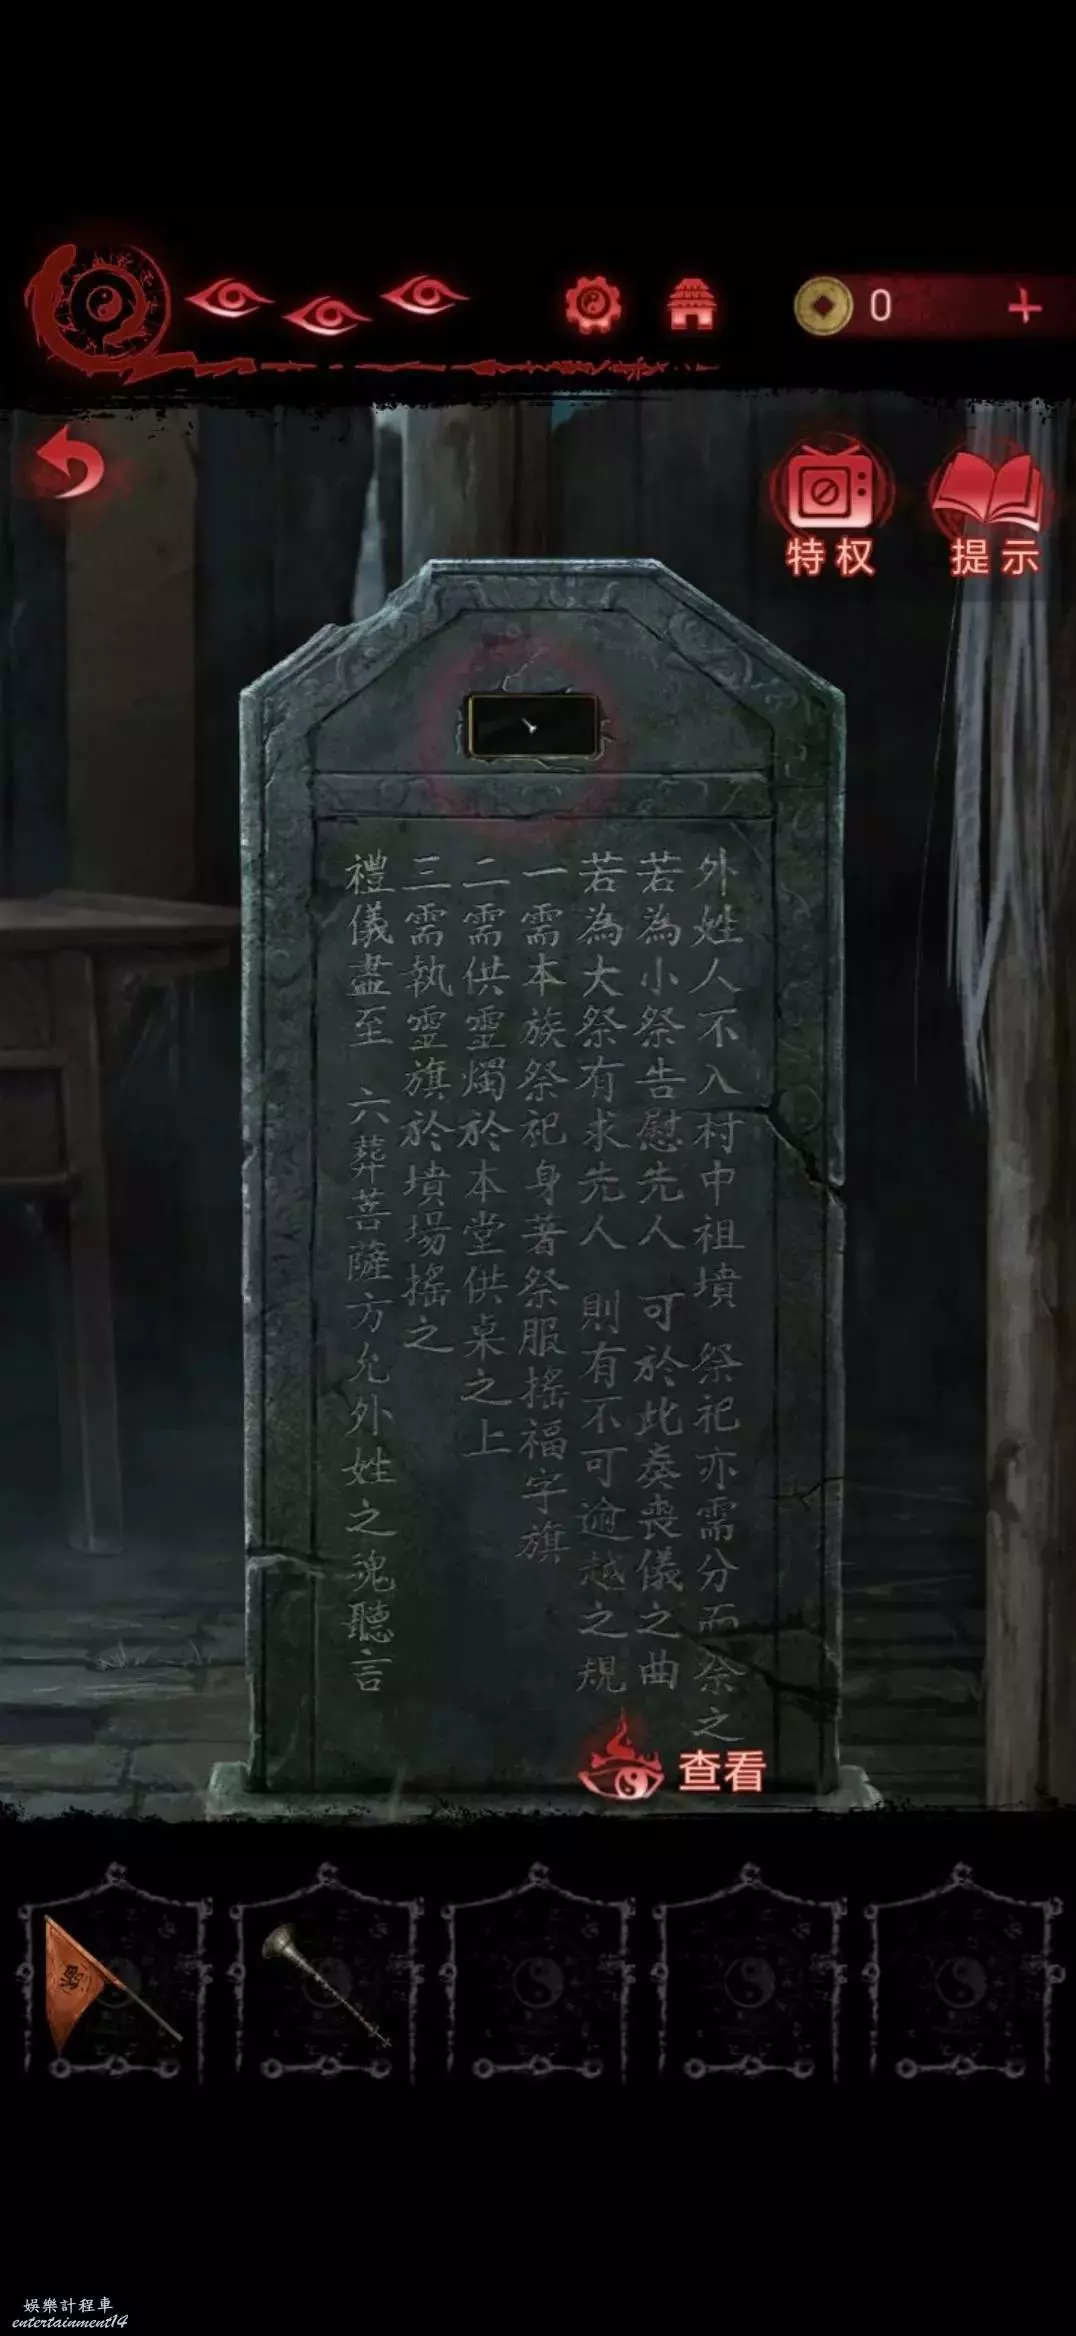 0
特权
提示
外姓人不入村中祖墳 祭祀亦需分而祭之
若為小祭告慰先人 可於此奏喪儀之曲
若為大祭有求先人 則有不可逾越之規
一需本族祭祀身著祭服搖福字旗
二需供靈燭於本堂供桌之上
三需執靈旗於墳場搖之
禮儀盡至 六葬菩薩方允外姓之魂聽言
查看
娛樂計程車
entertainment14